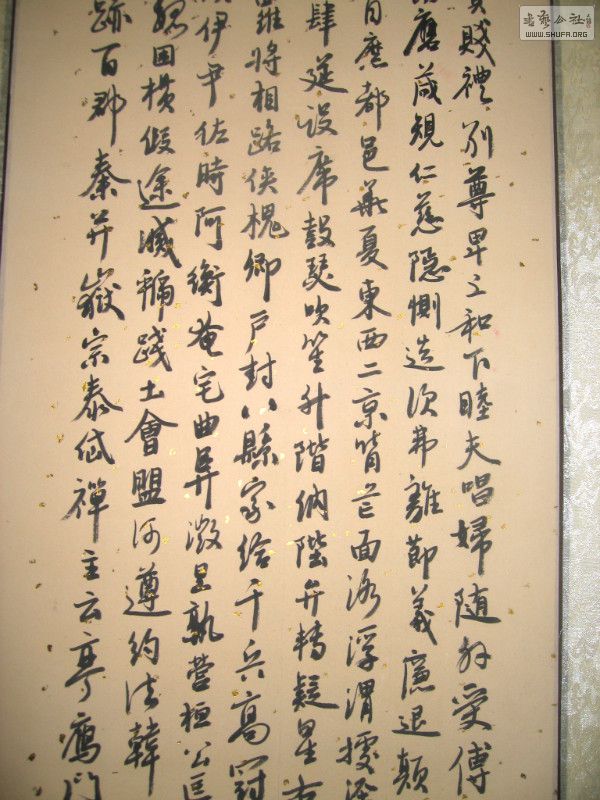 賤禮別尊卑上和下睦夫唱婦隨外受傅
磨箴規仁慈隱惻造次弗離節義廉退顛
自縻都邑華夏東西二京背芒面洛浮渭據涇
肆筵設席鼓瑟吹笙升階納陛弁轉疑星右
羅將相路俠槐卿戶封八縣家給千兵高冠
伊尹佐時阿衡奄宅曲阜微旦孰營桓公匡
魏困橫假途滅虢踐土會盟何遵約法韓
跡百郡秦并嶽宗泰岱禪主云亭雁門
書藝公社
WWW.SHUFA.ORG